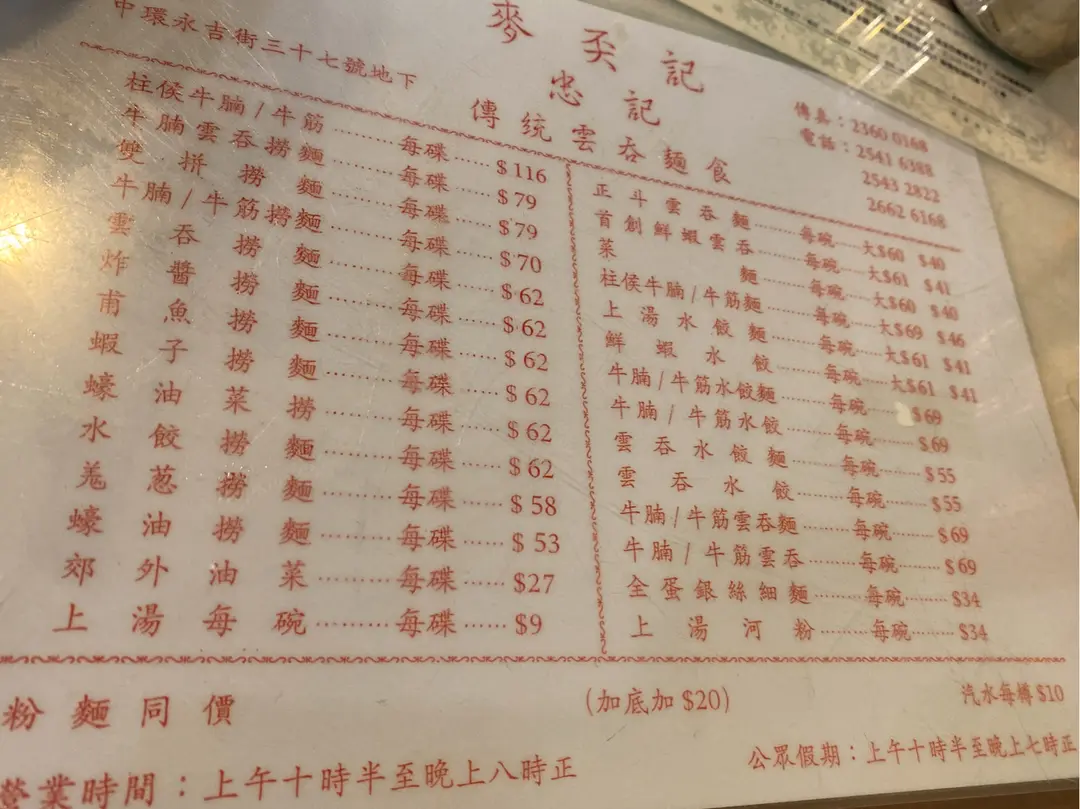 中環永吉街三十七號地下
麥奀記
忠記
傳統雲吞麵食
傳真：2360 0168
電話：2541 6388
2543 2822
2662 6168
柱侯牛腩/牛筋……每碟……$116
牛腩雲吞撈麵……每碟……$79
雙拼撈麵……每碟……$79
牛腩/牛筋撈麵……每碟……$70
雲吞撈麵……每碟……$62
炸醬撈麵……每碟……$62
甫魚撈麵……每碟……$62
蝦子撈麵……每碟……$62
蠔油菜撈……每碟……$62
水餃撈麵……每碟……$62
羗葱撈麵……每碟……$58
蠔油撈麵……每碟……$53
郊外油菜……每碟……$27
上湯每碗……每碟……$9
正斗雲吞麵……每碗……大$60 $40
首創鮮蝦雲吞……每碗……大$61 $41
菜麵……每碗……大$60 $40
柱侯牛腩/牛筋麵……每碗……大$69 $46
上湯水餃麵……每碗……大$61 $41
鮮蝦水餃……每碗……大$61 $41
牛腩/牛筋水餃麵……每碗……$69
牛腩/牛筋水餃……每碗……$69
雲吞水餃麵……每碗……$55
雲吞水餃……每碗……$55
牛腩/牛筋雲吞麵……每碗……$69
牛腩/牛筋雲吞……每碗……$69
全蛋銀絲細麵……每碗……$34
上湯河粉……每碗……$34
粉麵同價
(加底加 $20)
汽水每樽 $10
營業時間：上午十時半至晚上八時正
公眾假期：上午十時半至晚上七時正